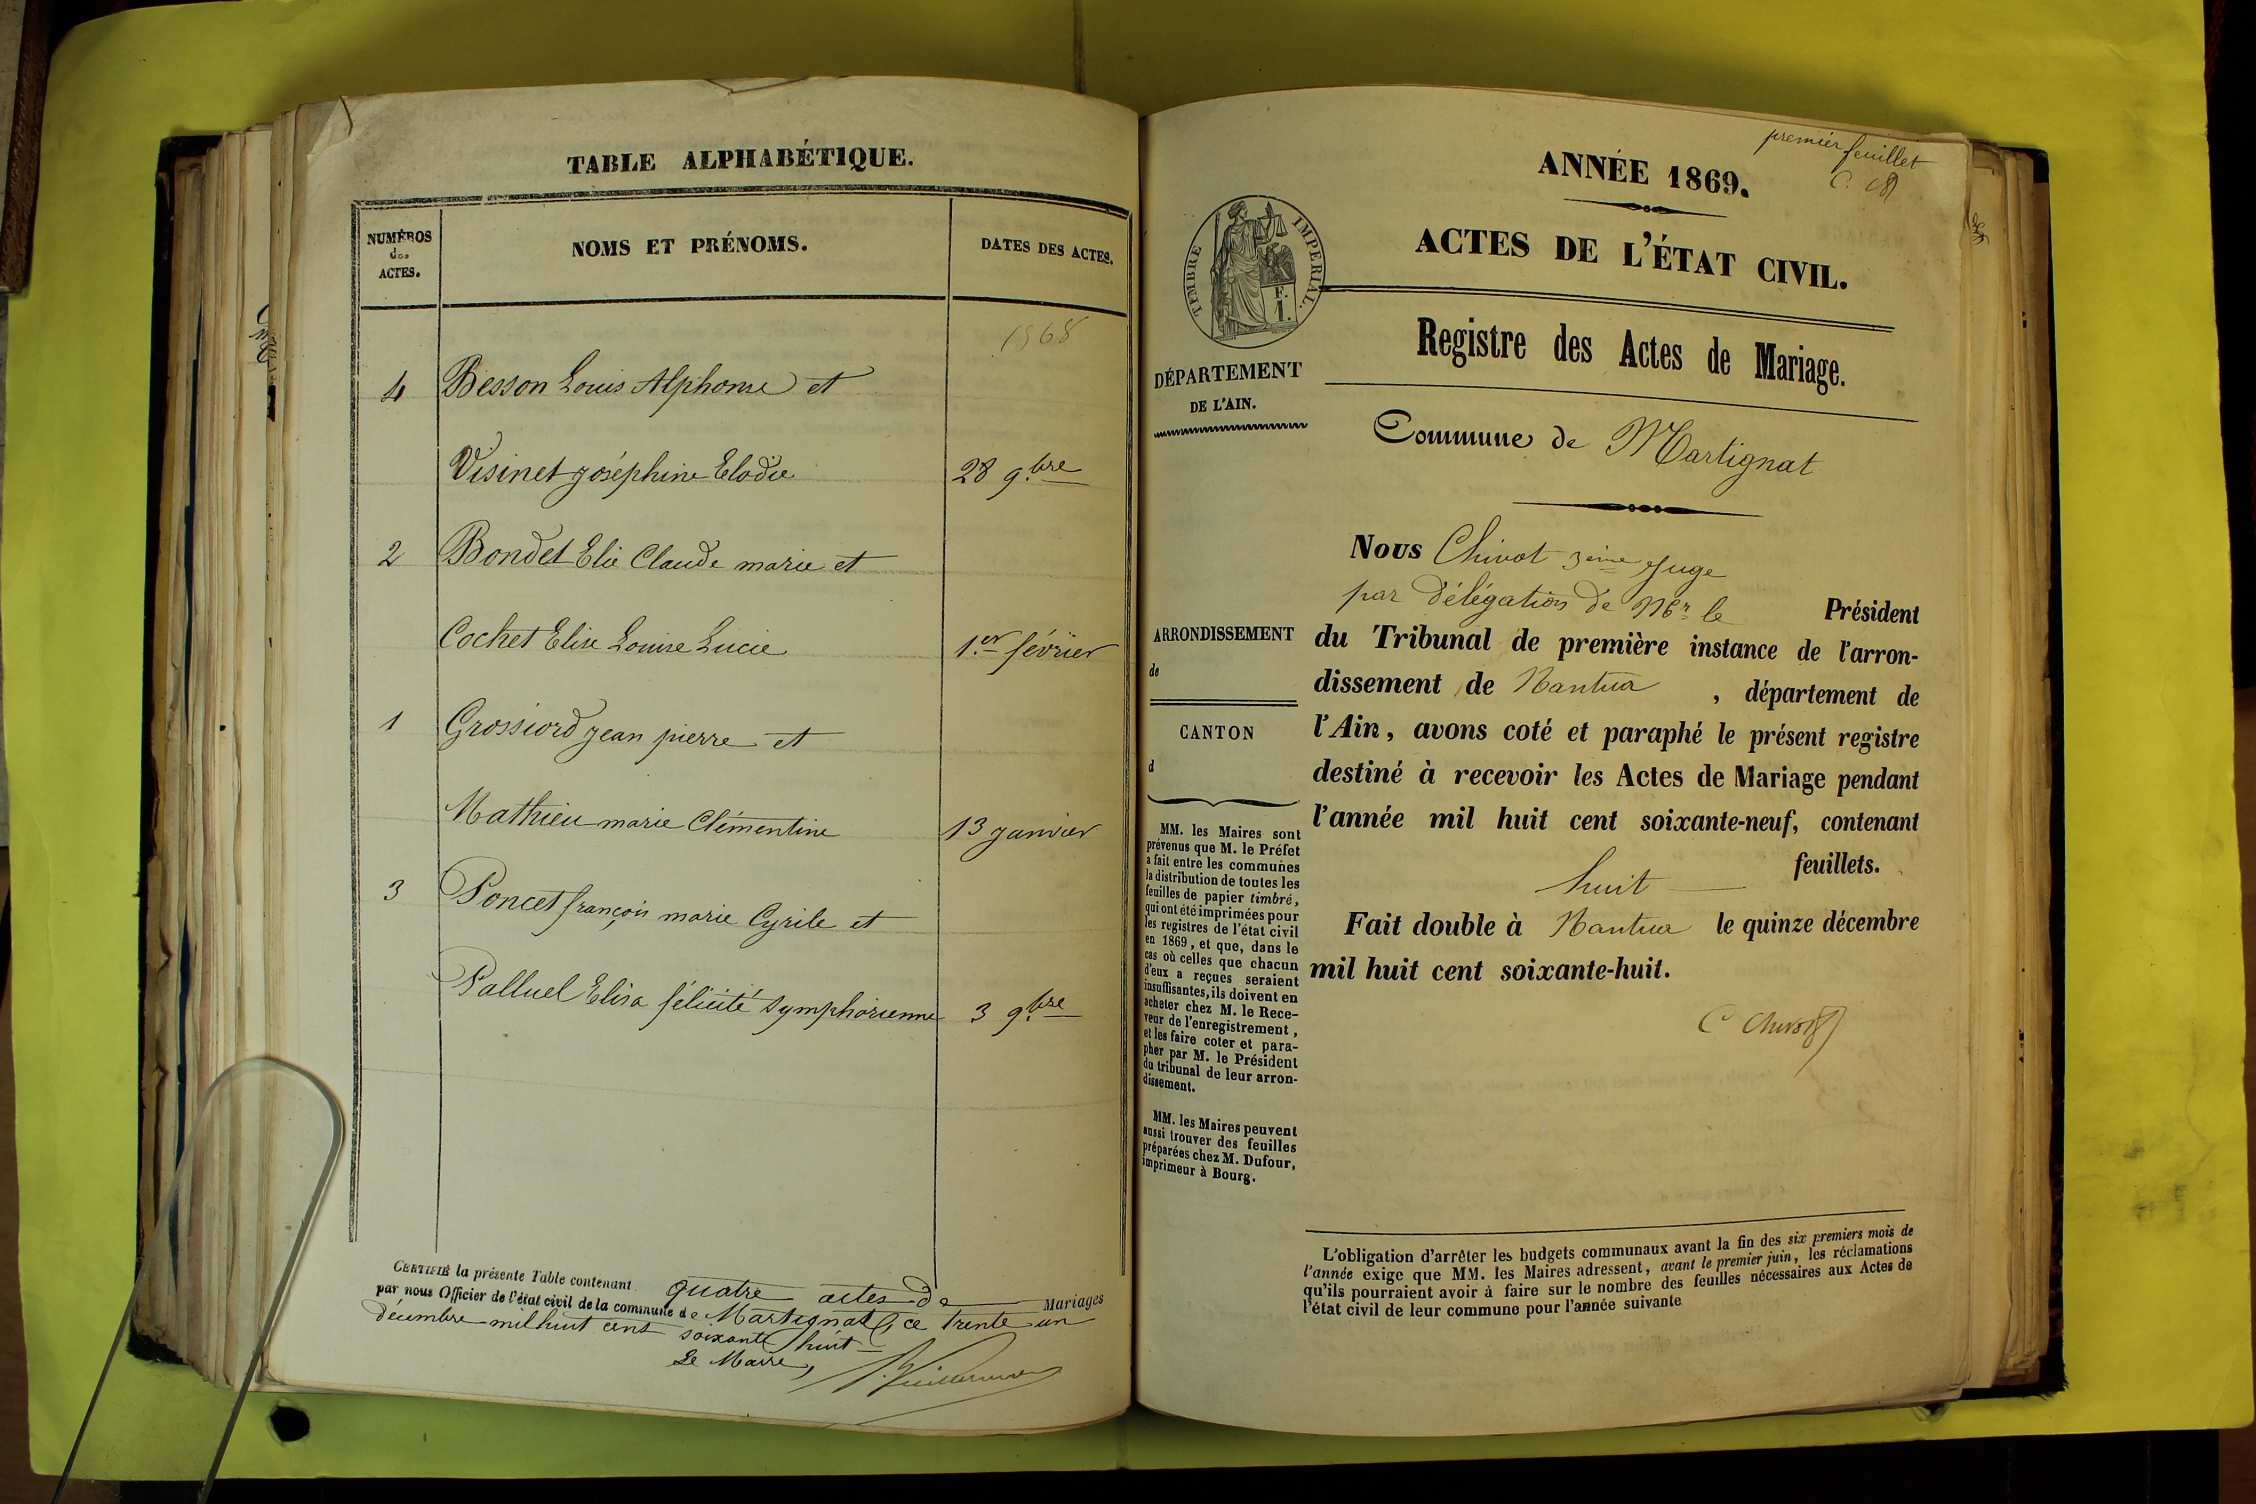 TABLE ALPHABÉTIQUE.
NUMÉROS
des
ACTES.
NOMS ET PRÉNOMS.
DATES DES ACTES.
1868
4 Besson Louis Alphonse et
Visinet joséphine Elodie 28 9.bre
2 Bondet Elie Claude marie et
Cochet Elise Louise Lucie 1.er février
1 Grossiord jean pierre et
Mathieu marie Clémentine 13 janvier
3 Poncet françois marie Cyrile et
Palluel Elisa félicité Symphorienne 3 9.bre
CERTIFIÉ la présente Table contenant quatre actes de Mariages
par nous Officier de l'état civil de la commune de Martignat, ce trente un
décembre mil huit cent soixante huit
Le Maire,
premier feuillet
ANNÉE 1869.
ACTES DE L'ÉTAT CIVIL.
TIMBRE IMPERIAL.
F.
1.
Registre des Actes de Mariage.
DÉPARTEMENT
DE L'AIN.
Commune de Martignat
Nous Chivot 3ème Juge
par délégation de Mr. le Président
ARRONDISSEMENT
de
du Tribunal de première instance de l'arron-
dissement de Nantua , département de
CANTON
d
l'Ain, avons coté et paraphé le présent registre
destiné à recevoir les Actes de Mariage pendant
l'année mil huit cent soixante-neuf, contenant
huit feuillets.
Fait double à Nantua le quinze décembre
mil huit cent soixante-huit.
C Chivot
MM. les Maires sont
prévenus que M. le Préfet
a fait entre les communes
la distribution de toutes les
feuilles de papier timbré,
qui ont été imprimées pour
les registres de l'état civil
en 1869, et que, dans le
cas où celles que chacun
d'eux a reçues seraient
insuffisantes, ils doivent en
acheter chez M. le Rece-
veur de l'enregistrement,
et les faire coter et para-
pher par M. le Président
du tribunal de leur arron-
dissement.
MM. les Maires peuvent
aussi trouver des feuilles
préparées chez M. Dufour,
imprimeur à Bourg.
L'obligation d'arrêter les budgets communaux avant la fin des six premiers mois de
l'année exige que MM. les Maires adressent, avant le premier juin, les réclamations
qu'ils pourraient avoir à faire sur le nombre des feuilles nécessaires aux Actes de
l'état civil de leur commune pour l'année suivante